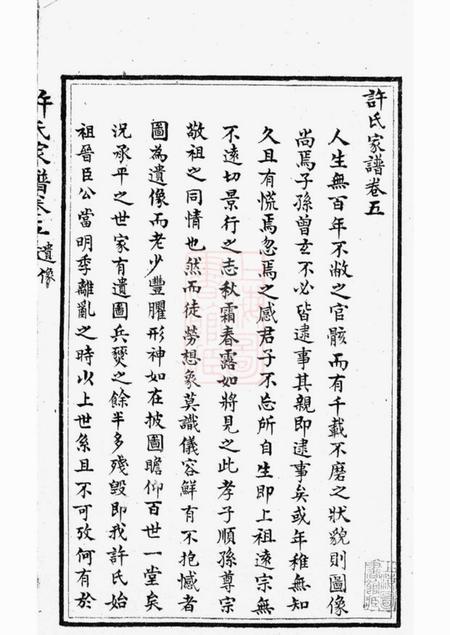 許氏家譜卷五
人生無百年不敝之官骸而有千載不磨之狀貌則圖像
尚焉子孫曾玄不必皆逮事其親即逮事矣或年稚無知
久且有慌焉忽焉之感君子不忘所自生即上祖遠宗無
不遠切景行之志秋霜春露如將見之此孝子順孫尊宗
敬祖之同情也然而徒勞想象莫識儀容鮮有不抱憾者
圖為遺像而老少豐臞形神如在披圖瞻仰百世一堂矣
況承平之世家有遺圖兵燹之餘半多殘毀即我許氏始
祖晉臣公當明季離亂之時以上世系且不可攷何有於
許氏家譜卷五 遺像